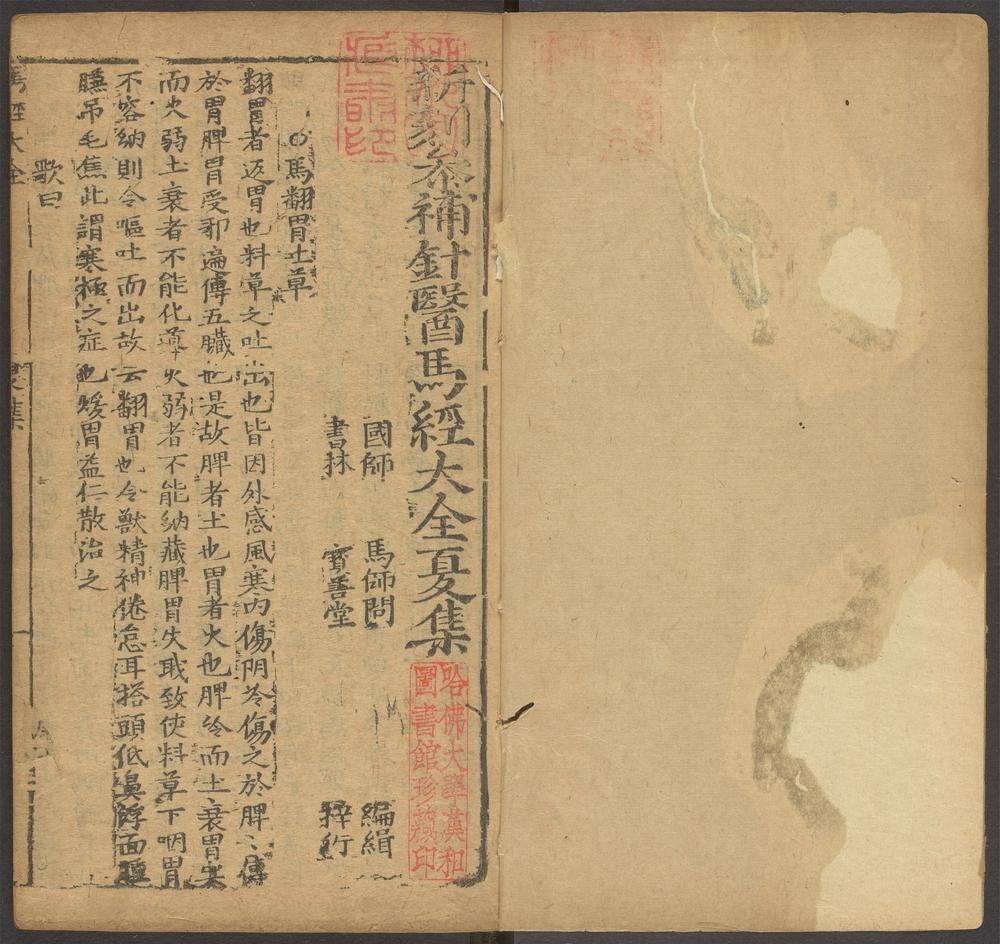 新刻叅補針醫馬經大全夏集
國師 馬師問 編緝
書林 寳善堂 梓行
馬翻胃吐草
翻胃者返胃也料草之吐出也皆因外感風寒内傷阴冷傷之於脾〻傳
於胃脾胃受邪遍傳五臟也是故脾者土也胃者火也脾冷而土衰胃
而火弱土衰者不能化導火弱者不能納藏脾胃失職致使料草下咽胃
不容納則令嘔吐而出故云翻胃也令獸精神倦怠耳搭頭低鼻浮面
臁吊毛焦此謂寒極之症也煖胃益仁散治之
歌曰
馬經大全
夏集
哈佛大學漢和
圖書館珍藏印